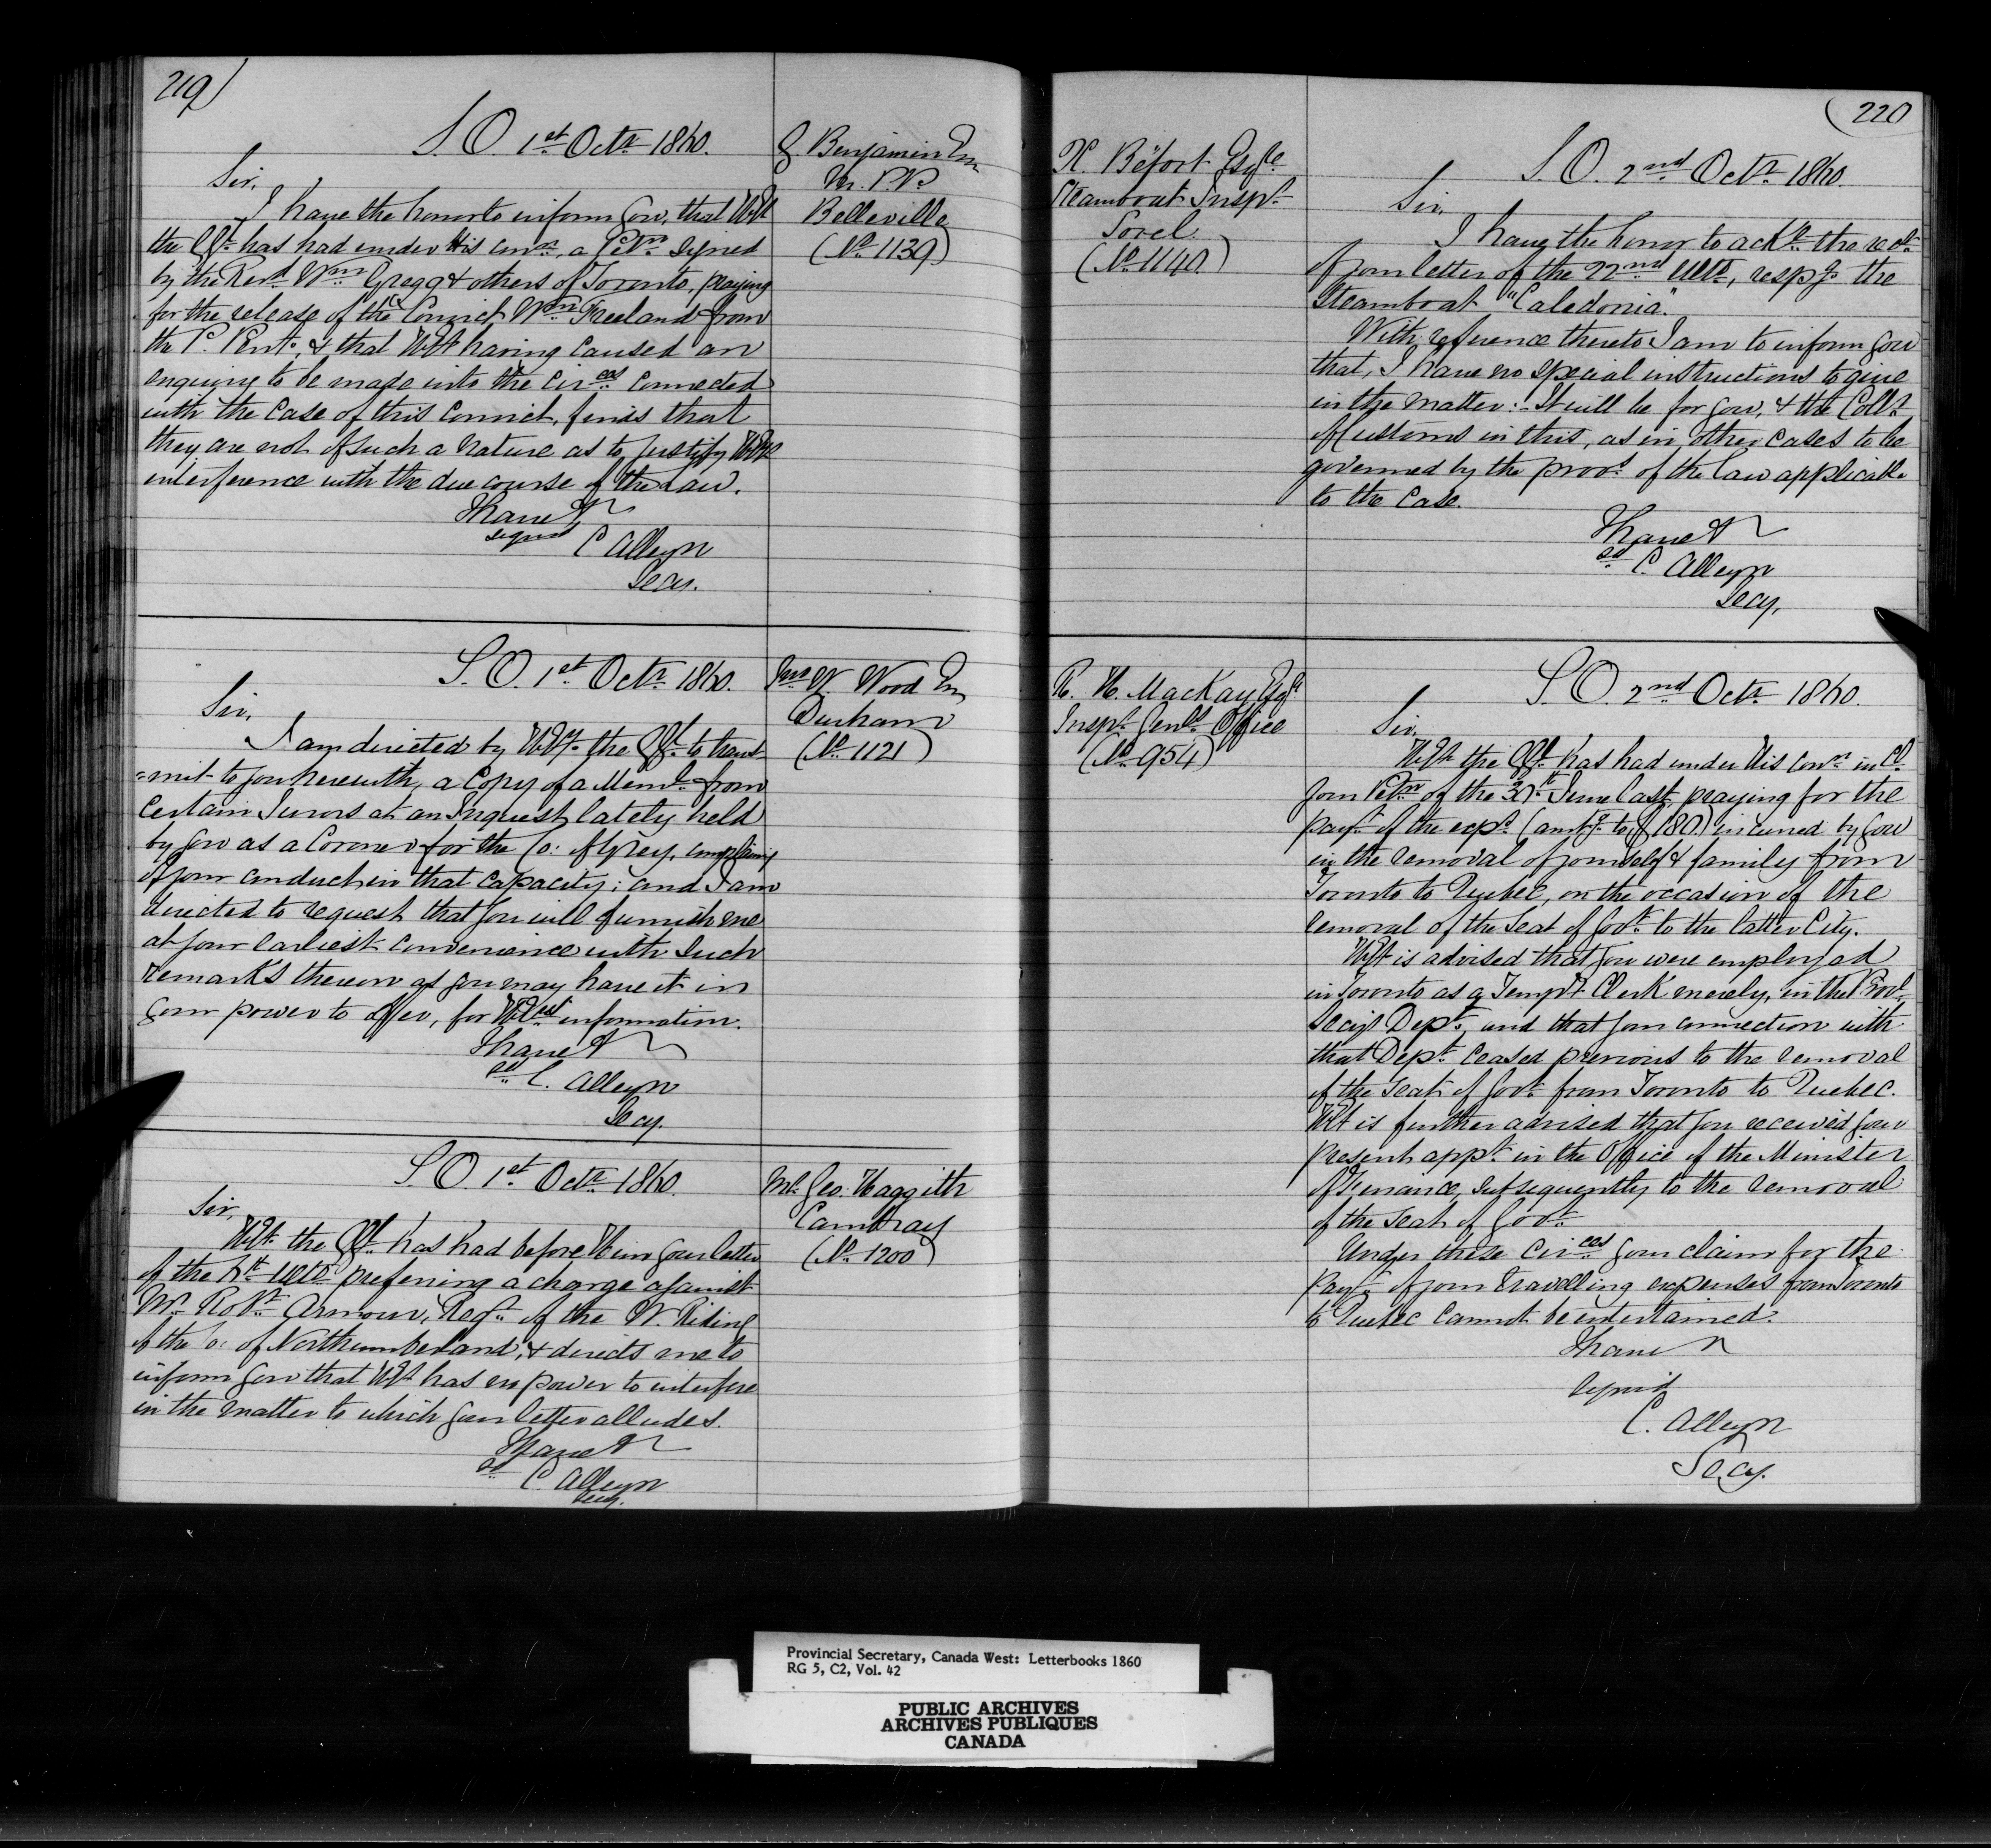 219)
S. O. 1st Octr 1860.
G Benjamin Esq
M. P. P.
Belleville
(No 1139)
Sir,
I have the honor to inform you, that HEx
the GGl has had under His conn, a Petn signed
by the Revd Wm Gregg & others of Toronto, praying
for the release of the Convict Wm Freeland from
the P. Penty, & that HEx having caused an
enquiry to be made into the Circes connected
with the case of this convict, finds that
they are not of such a nature as to justify HEx's
interference with the due course of the Law.
I have &c
signed C Alleyn
Secy.
S. O. 1st Octr 1860.
Jno W. Wood Esq
Durham
(No 1121)
Sir,
I am directed by HExy the GGl to trans-
=mit to you herewith, a Copy of a Meml from
certain Jurors at an Inquest lately held
by you as a Coroner for the Co: of Grey, complaing
of your conduct in that capacity; and I am
directed to request that you will furnish me
at your earliest convenience with such
remarks thereon as you may have it in
your power to offer, for HExs information.
I have &c
sd C. Alleyn
Secy.
S. O. 1st Octr 1860.
Mr Geo. Haggith
Cambray
(No 1200)
Sir,
HEx the GGl has had before Him your letter
of the ulto preferring a charge against
Mr Robt Armour, Regr of the W. Riding
of the Co: of Northumberland, & directs me to
inform you that HEx has no power to interfere
in the matter to which your letter alludes.
I have &c
sd C. Alleyn
Secy.
(220
H. Béfort Esqre
Steamboat Inspr
Sorel
(No 1140)
S. O. 2nd Octr 1860.
Sir,
I have the honor to ackge the rect
of your letter of the 22nd ulto, respg the
Steamboat "Caledonia".
With reference thereto I am to inform you
that, I have no special instructions to give
in the matter:- It will be for you, & the Collr
of Customs in this, as in other cases to be
governed by the provs of the law applicable
to the case.
I have &c
sd C. Alleyn
Secy.
R. H. MacKay Esqr
Inspr Genls Office
(No 954)
S. O. 2nd Octr 1860.
Sir,
HEx the GGl has had under His conn in Cl
your Petn of the 30th June last, praying for the
payt of the exps (amtg to $180) incurred by you
in the removal of yourself & family from
Toronto to Quebec, on the occasion of the
removal of the Seat of Govt to the latter City.
HEx is advised that you were employed
in Toronto as a Tempy Clerk merely, in the Provl
Secys Dept, and that your connection with
that Dept ceased previous to the removal
of the Seat of Govt from Toronto to Quebec.
HEx is further advised that you received your
present appt in the Office of the Minister
of Finance, subsequently to the removal
of the Seat of Govt.
Under these Circes your claim for the
payt of your travelling expenses from Toronto
to Quebec cannot be entertained.
I have &c
signed
C. Alleyn
Secy.
Provincial Secretary, Canada West: Letterbooks 1860
RG 5, C2, Vol. 42
PUBLIC ARCHIVES
ARCHIVES PUBLIQUES
CANADA